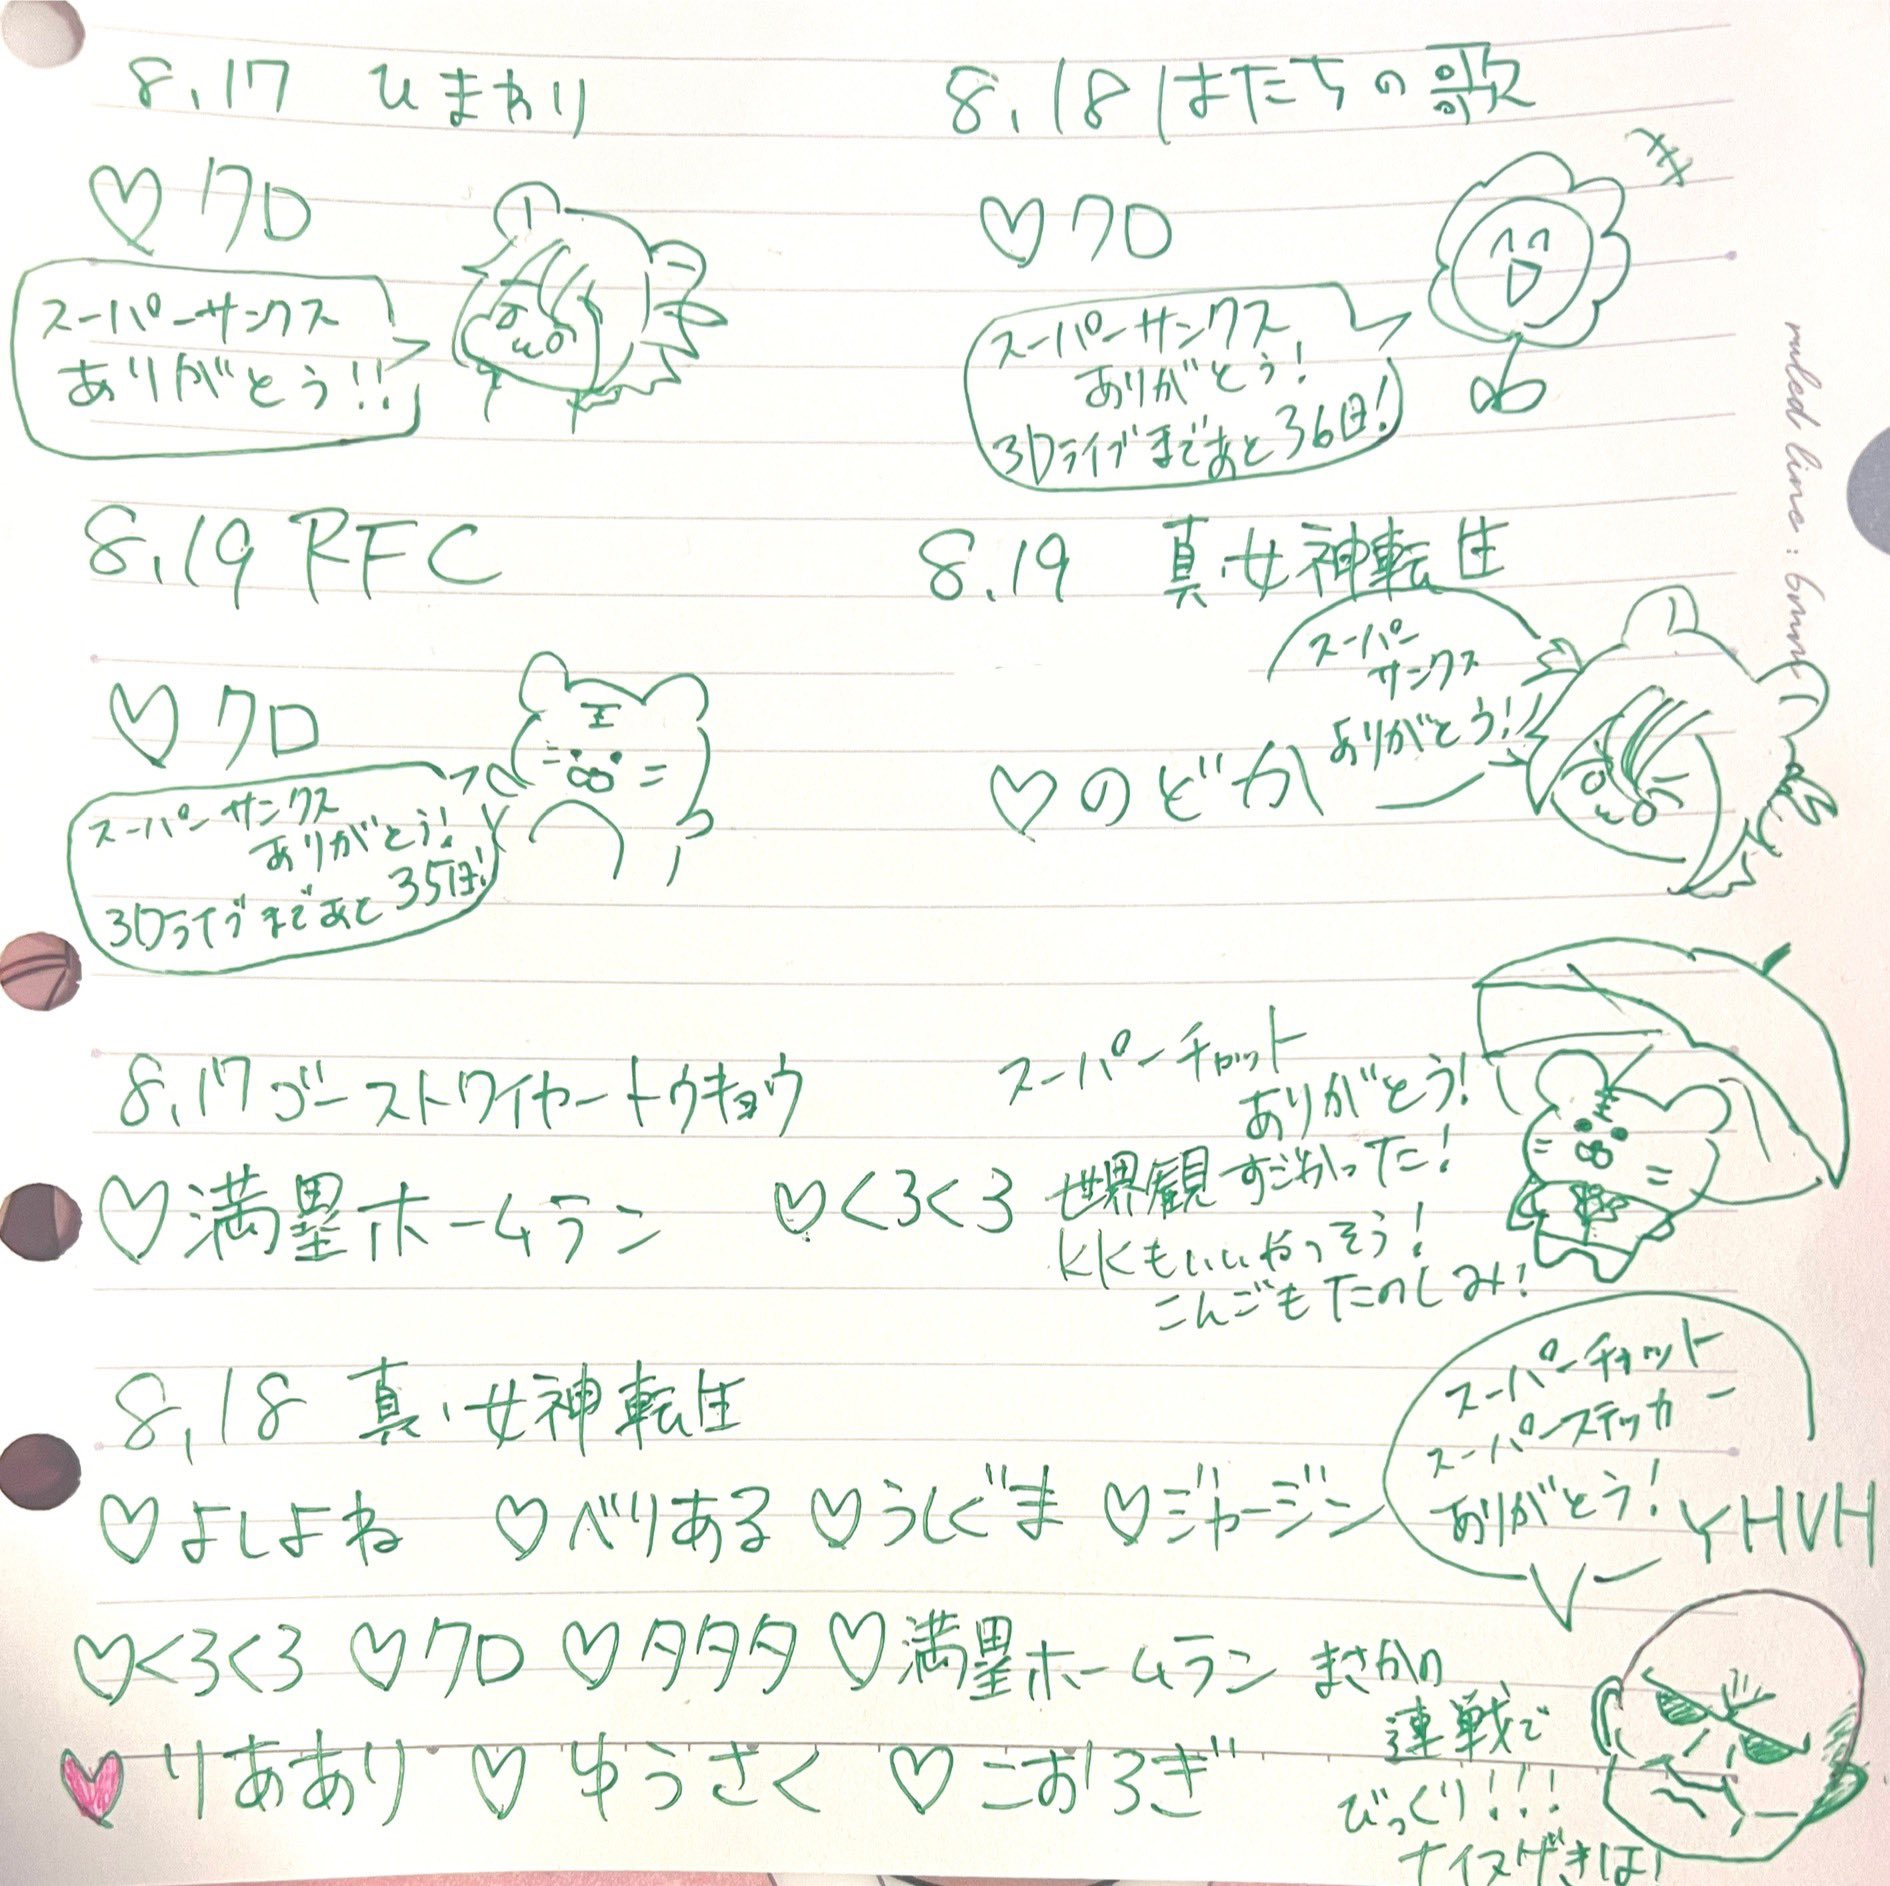 8.17 ひまわり
♡クロ
スーパーサンクス
ありがとう!!
8.18 はたちの歌
♡クロ
スーパーサンクス
ありがとう!
3Dライブまであと36日!
8.19 RFC
♡クロ
スーパーサンクス
ありがとう!
3Dライブまであと35日!
8.19 真・女神転生
スーパー
サンクス
ありがとう!
♡のどか
ruled line : 6mm
8.17 ゴーストワイヤートウキョウ
♡満塁ホームラン ♡くろくろ
スーパーチャット
ありがとう!
世界観すごかった!
KKもいいやつそう!
こんごもたのしみ!
8.18 真・女神転生
♡よしよね ♡べりある ♡うしぐま ♡ジャージン
スーパーチャット
スーパーステッカー
ありがとう!
YHVH
♡くろくろ ♡クロ ♡タタタ ♡満塁ホームラン
♡りああり ♡ゆうさく ♡こおろぎ
まさかの
連戦で
びっくり!!!
ナイスげきは!